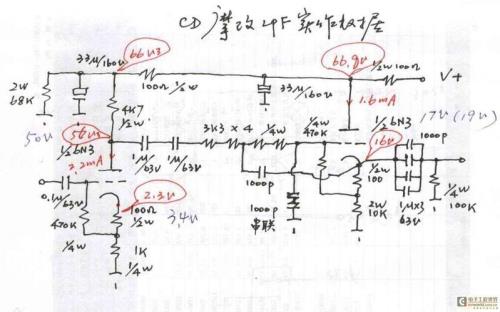 CD 摩改 LPF 实作数据
33μ/160v
66v3
100Ω
1/2w
66.9v
33μ/160v
1/2w 100Ω
V+
2W
68K
50v
4K7
1/2w
56v
1/2 6N3
2.2mA
1μ/63v
1μ/63v
3K3 × 4
1/4w
1/4w
470K
1.6mA
1/2 6N3
16v
17v (19v)
1000p
0.1μ/63v
470K
1/4w
2.3v
100Ω
1/2w
3.4v
1K
1/4w
1000p
1000p
串联
1/2w
100
2W
10K
1μx3
63v
1/4w
100K